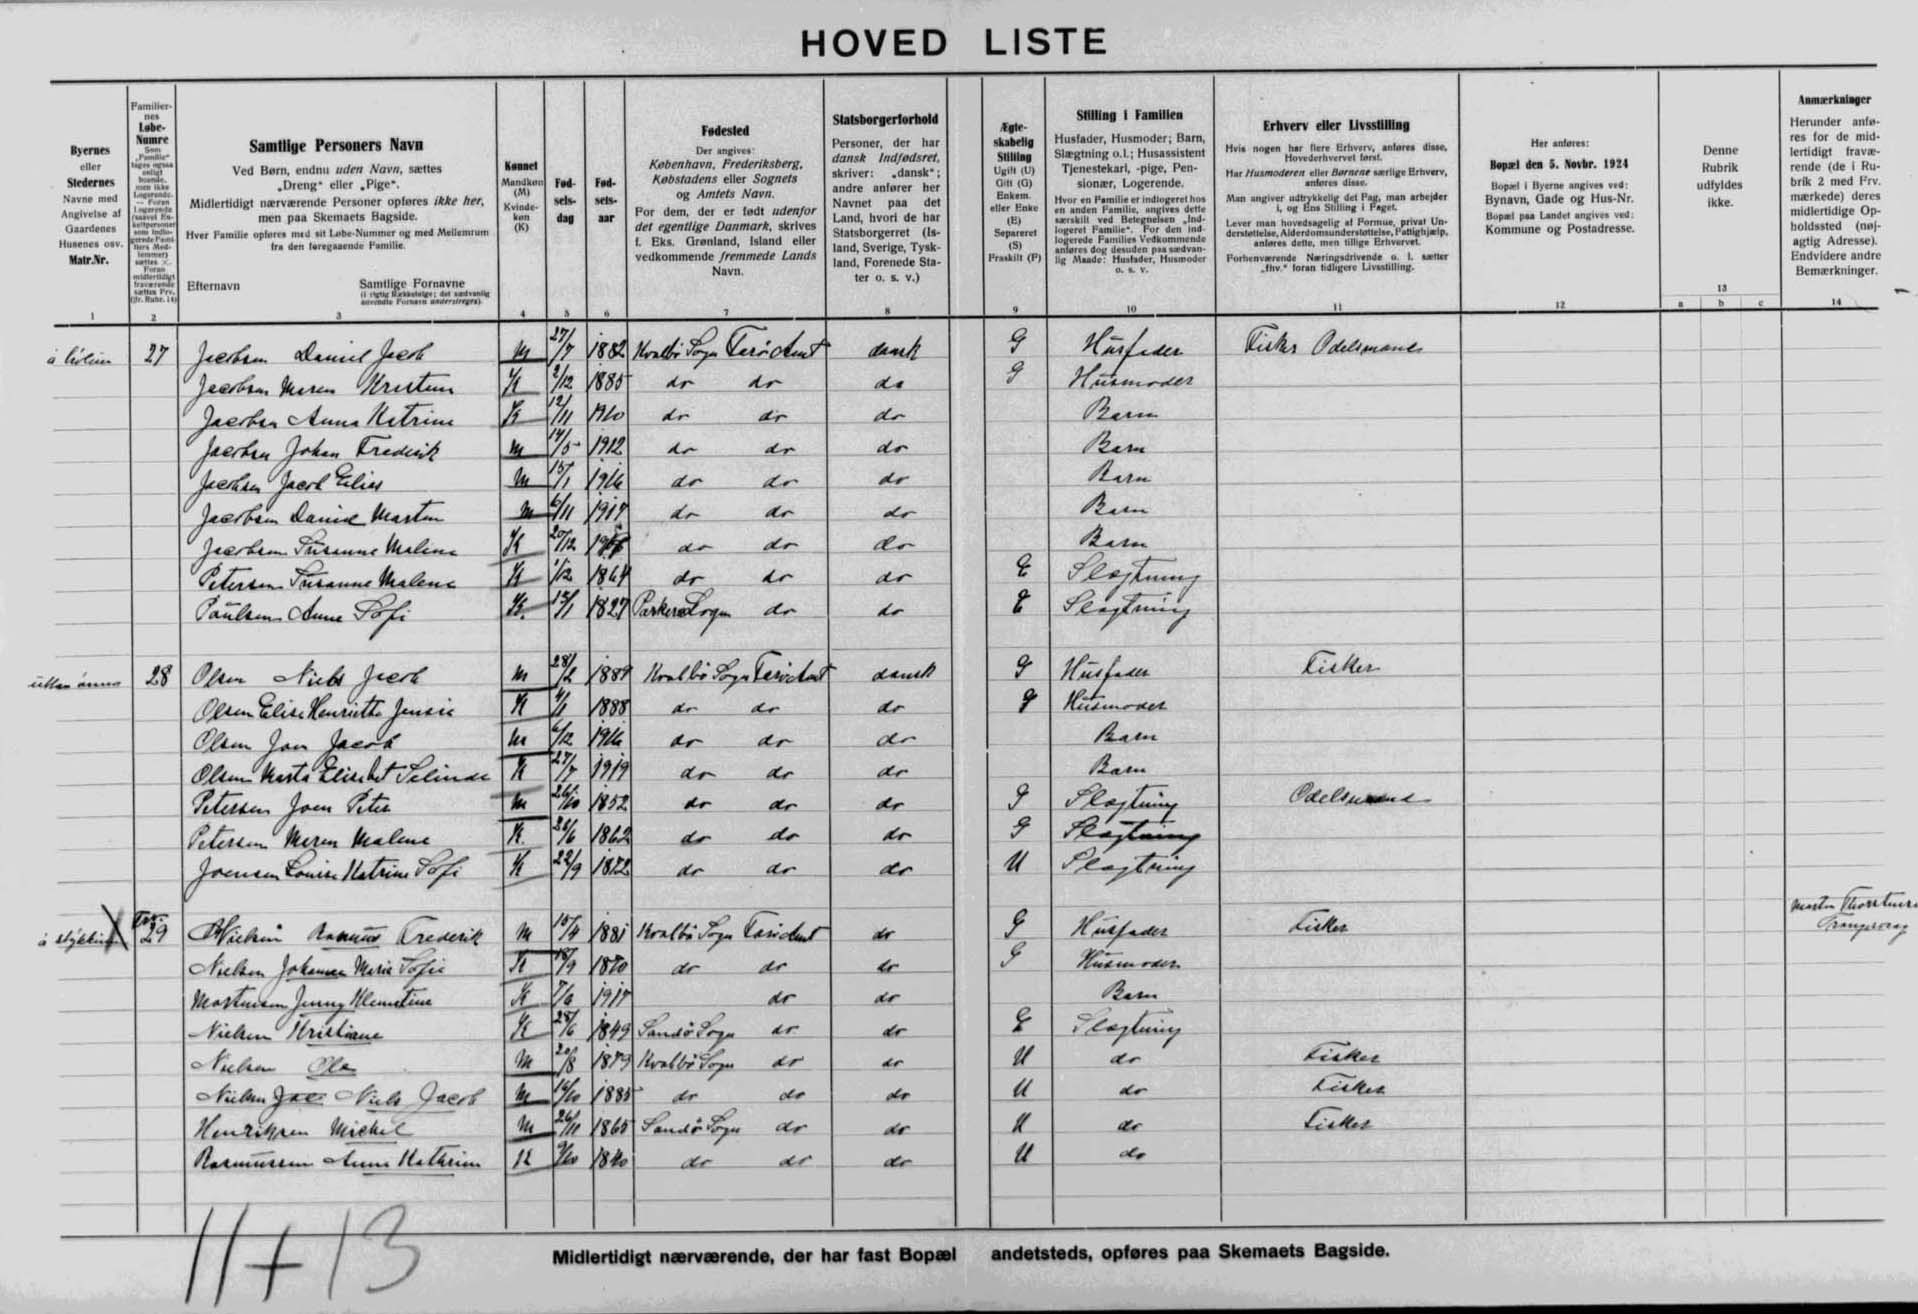 HOVED LISTE
Byernes
eller
Stedernes
Navne med
Angivelse af
Gaardenes
Husenes osv.
Matr.Nr.
1
Familier-
nes
Løbe-
Numre
2
Samtlige Personers Navn
Ved Børn, endnu uden Navn, sættes
„Dreng“ eller „Pige“.
Midlertidigt nærværende Personer opføres ikke her,
men paa Skemaets Bagside.
Hver Familie opføres med sit Løbe-Nummer og med Mellemrum
fra den foregaaende Familie.
Efternavn
Samtlige Fornavne
(i rigtig Rækkefølge; det sædvanlig
anvendte Fornavn understreges).
3
Kønnet
Mandkøn
(M)
Kvinde-
køn
(K)
4
Fød-
sels-
dag
5
Fød-
sels-
aar
6
Fødested
Der angives:
København, Frederiksberg,
Købstadens eller Sognets
og Amtets Navn.
For dem, der er født udenfor
det egentlige Danmark, skrives
f. Eks. Grønland, Island eller
vedkommende fremmede Lands
Navn.
7
Statsborgerforhold
Personer, der har
dansk Indfødsret,
skriver: „dansk“;
andre anfører her
Navnet paa det
Land, hvori de har
Statsborgerret (Is-
land, Sverige, Tysk-
land, Forenede Sta-
ter o. s. v.)
8
Ægte-
skabelig
Stilling
Ugift (U)
Gift (G)
Enkem.
eller Enke
(E)
Separeret
(S)
Fraskilt (F)
9
Stilling i Familien
Husfader, Husmoder; Barn,
Slægtning o.l.; Husassistent
Tjenestekarl, -pige, Pen-
sionær, Logerende.
Hvor en Familie er indlogeret hos
en anden Familie, angives dette
særskilt ved Betegnelsen „Ind-
logeret Familie“. For den ind-
logerede Families Vedkommende
anføres dog desuden paa sædvan-
lig Maade: Husfader, Husmoder
o. s. v.
10
Erhverv eller Livsstilling
Hvis nogen har flere Erhverv, anføres disse,
Hovederhvervet først.
Har Husmoderen eller Børnene særlige Erhverv,
anføres disse.
Man angiver udtrykkelig det Fag, man arbejder
i, og Ens Stilling i Faget.
Lever man hovedsagelig af Formue, privat Un-
derstøttelse, Alderdomsunderstøttelse, Fattighjælp,
anføres dette, men tillige Erhvervet.
Forhenværende Næringsdrivende o. l. sætter
„fhv.“ foran tidligere Livsstilling.
11
Her anføres:
Bopæl den 5. Novbr. 1924
Bopæl i Byerne angives ved:
Bynavn, Gade og Hus-Nr.
Bopæl paa Landet angives ved:
Kommune og Postadresse.
12
Denne
Rubrik
udfyldes
ikke.
13
a b c
Anmærkninger
Herunder anfø-
res for de mid-
lertidigt fravæ-
rende (de i Ru-
brik 2 med Frv.
mærkede) deres
midlertidige Op-
holdssted (nøj-
agtig Adresse).
Endvidere andre
Bemærkninger.
14
27 Jacobsen Daniel Jacob M 27/7 1882 Kvalbø Sogn Færø Amt dansk G Husfader Fisker Odelsmand
Jacobsen Maren Kristine K 2/12 1885 do do do G Husmoder
Jacobsen Anna Katrine K 12/11 1910 do do do Barn
Jacobsen Johan Frederik M 14/5 1912 do do do Barn
Jacobsen Jacob Elias M 15/1 1916 do do do Barn
Jacobsen Daniel Martin M 6/11 1917 do do do Barn
Jacobsen Susanne Malene K 20/12 do do do Barn
Petersen Susanne Malene K 1/12 1864 do do do E Slægtning
Poulsen Anne Sofi K. 1827 Sogn do do E Slægtning
28 Olsen Niels Jacob M 28/2 1889 Kvalbø Sogn Færø Amt dansk G Husfader Fisker
Olsen Elise Henriette Jensie K 1888 do do do G Husmoder
Olsen Jon Jacob M 6/12 1916 do do do Barn
Olsen Marta Elisabet Selinda K 27/7 1919 do do do Barn
Petersen Joen Peter M 26/10 1852 do do do G Slægtning Odelsmand
Petersen Maren Malene K. 28/6 1862 do do do G Slægtning
Joensen Louise Katrine Sofi K 22/9 1872 do do do U Slægtning
29 Nielsen Rasmus Frederik M 15/4 1881 Kvalbø Sogn Færø Amt do G Husfader Fisker
Nielsen Johanna Marie Sofie K 18/9 1870 do do do G Husmoder
Mortensen Jenny Klementine K 7/6 1917 do do Barn
Nielsen Kristiane K 28/6 1849 Sandø Sogn do do E Slægtning
Nielsen Ole M 20/8 1879 Kvalbø Sogn do do U do Fisker
Nielsen Niels Jacob M 16/10 1885 do do do U do Fisker
Henriksen Mickel M 26/11 1865 Sandø Sogn do do U do Fisker
Rasmussen Anna Kathrine K 9/10 1840 do do do U do
11+13
Midlertidigt nærværende, der har fast Bopæl andetsteds, opføres paa Skemaets Bagside.